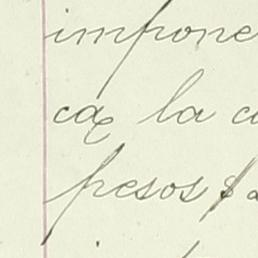 impone
ca la c
pesos $